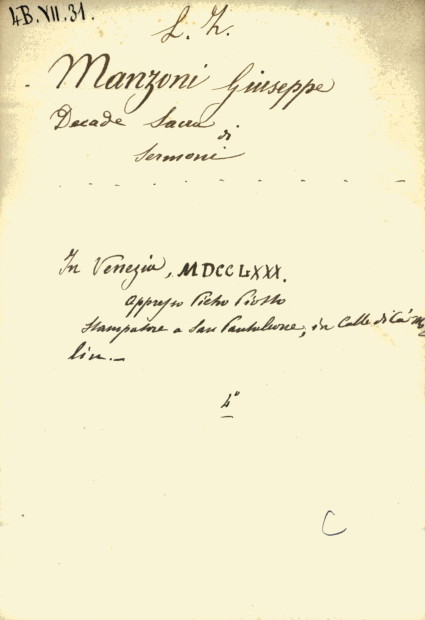 4B.VII.31.
L. Z.
Manzoni Giuseppe
Decade Sacra
di
Sermoni
In Venezia, MDCCLXXX.
Appresso Pietro Piotto
Stampatore a San Pantaleone, in Calle di Ca'
lin.
4°
C